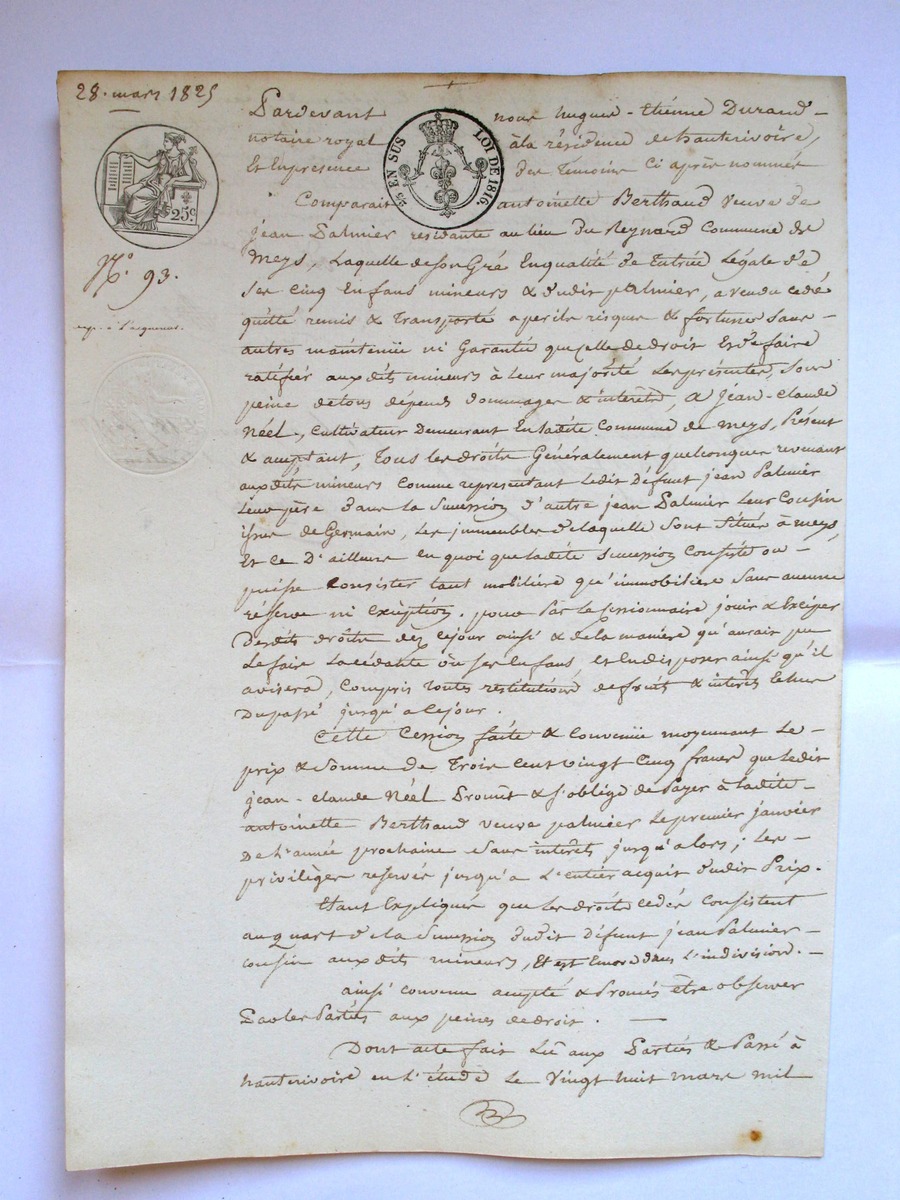 28. mars 1825
Pardevant nous hugue-étiénne Durand
notaire royal à la résidence de hauterivoire,
Et En présence des Temoins Ci après nommés
EN SUS LOI DE 1816
25 c
Comparait antoinette Berthaud veuve de
jean Palmier residante au lieu du Reynard Commune de
Meys, Laquelle de son Gré En qualité de Tutrice Légale d'a
Ses Cinq Enfans mineurs & dudit palmier, a vendu cédé
N.° 93.
quitté remis & Transporté a perils risques & fortunes Sans
autres maintenüe ni Garantie que celle de droit Et de faire
ratifiér aux dits mineurs à leur majorité Les présentes, Sous
peine de tous dépends dommages & intérets, a Jéan-Claude
Néel, Cultivateur Demeurant En ladite Commune de Meys, Présent
& acceptant, Tous les droits Généralement quelconques revenant
auxdits mineurs Comme représentant Ledit Défunt jean Palmier
Leur père dans la Succession d'autre jean Palmier Leur Cousin
issus de Germain, Les immeubles de laquelle Sont Situés à meys,
Et ce D'ailleurs en quoi que ladite Succession Consiste ou
puisse Consister tant mobiliére qu'immobiliére Sans aucune
réserve ni Exception. pour Par Le cessionnaire jouir & Exciper
Desdits droits dez ce jour ainsi & de la maniére qu'aurait pu
Le faire La cédante ou ses Enfans, et En disposer ainsi qu'il
avisera, Compris Toutes restitutions de fruits & intérets Echus
Du passé jusqu'a ce jour.
Cette Cession faite & Convenüe moyennant Le
prix & Somme de Trois Cent vingt Cinq francs que Ledit
jean-Claude Néel Promet & s'oblige de Payer à Ladite
antoinette Berthaud veuve palmier Le premier janvier
De L'année prochaine Sans intérets jusqu'alors; Les
privilèges reservés jusqu'a L'entiér acquit dudit Prix.
Etant Expliqué que Les droits cédés Consistent
au quart de la Succession dudit Défunt jean Palmier
Cousin aux dits mineurs, Et est Encore dans L'indivision.
ainsi convenu accepté & Promis être observer
Par les Parties aux peines de droit.
Dont acte fait Lu aux Parties & Passé à
hauterivoire en L'étude Le Vingt huit mars mil